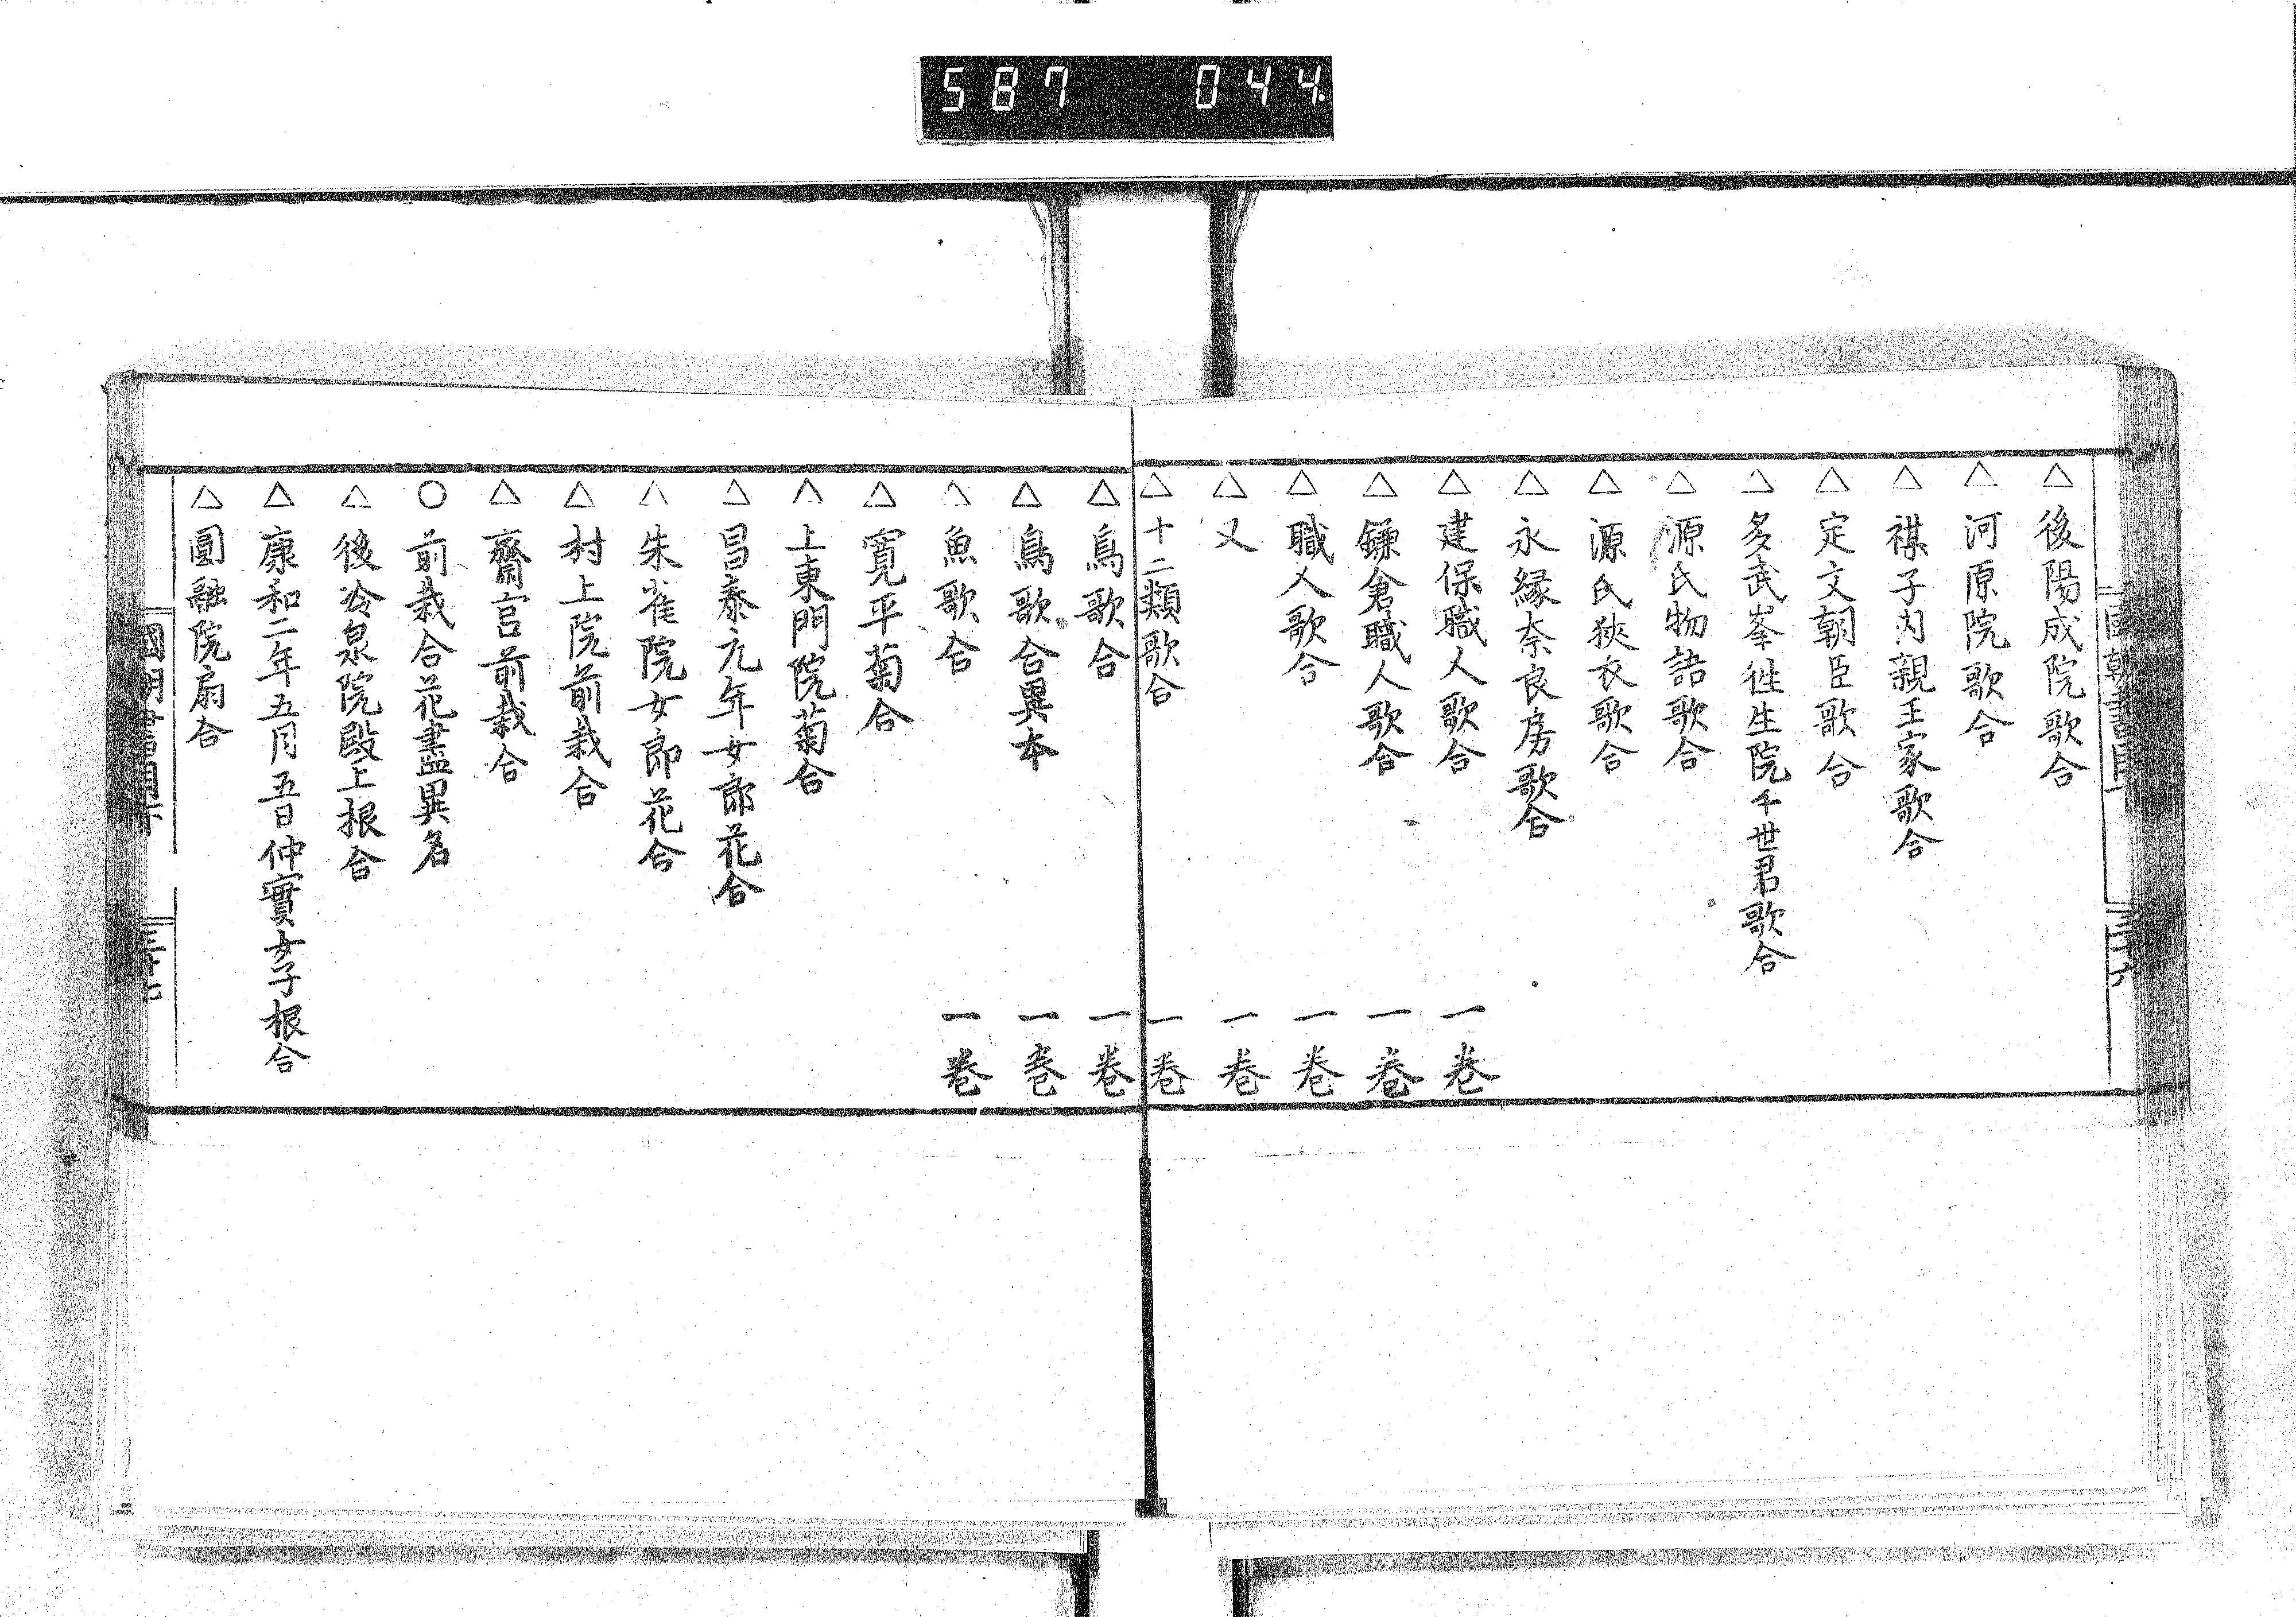 587 044
△後陽成院歌合
△河原院歌合
△禖子内親王家歌合
△定文朝臣歌合
△多武峯徃生院千世君歌合
△源氏物語歌合
△源氏狹衣歌合
△永縁奈良房歌合
△建保職人歌合 一卷
△鎌倉職人歌合 一卷
△職人歌合 一卷
△又 一卷
△十二類歌合 一卷
△鳥歌合 一卷
△鳥歌合異本 一卷
△魚歌合 一卷
△寛平菊合
△上東門院菊合
△昌泰元年女郎花合
△朱雀院女郎花合
△村上院前栽合
△齋宮前栽合
○前栽合花盡異名
△後冷泉院殿上根合
△康和二年五月五日仲實女子根合
△圓融院扇合